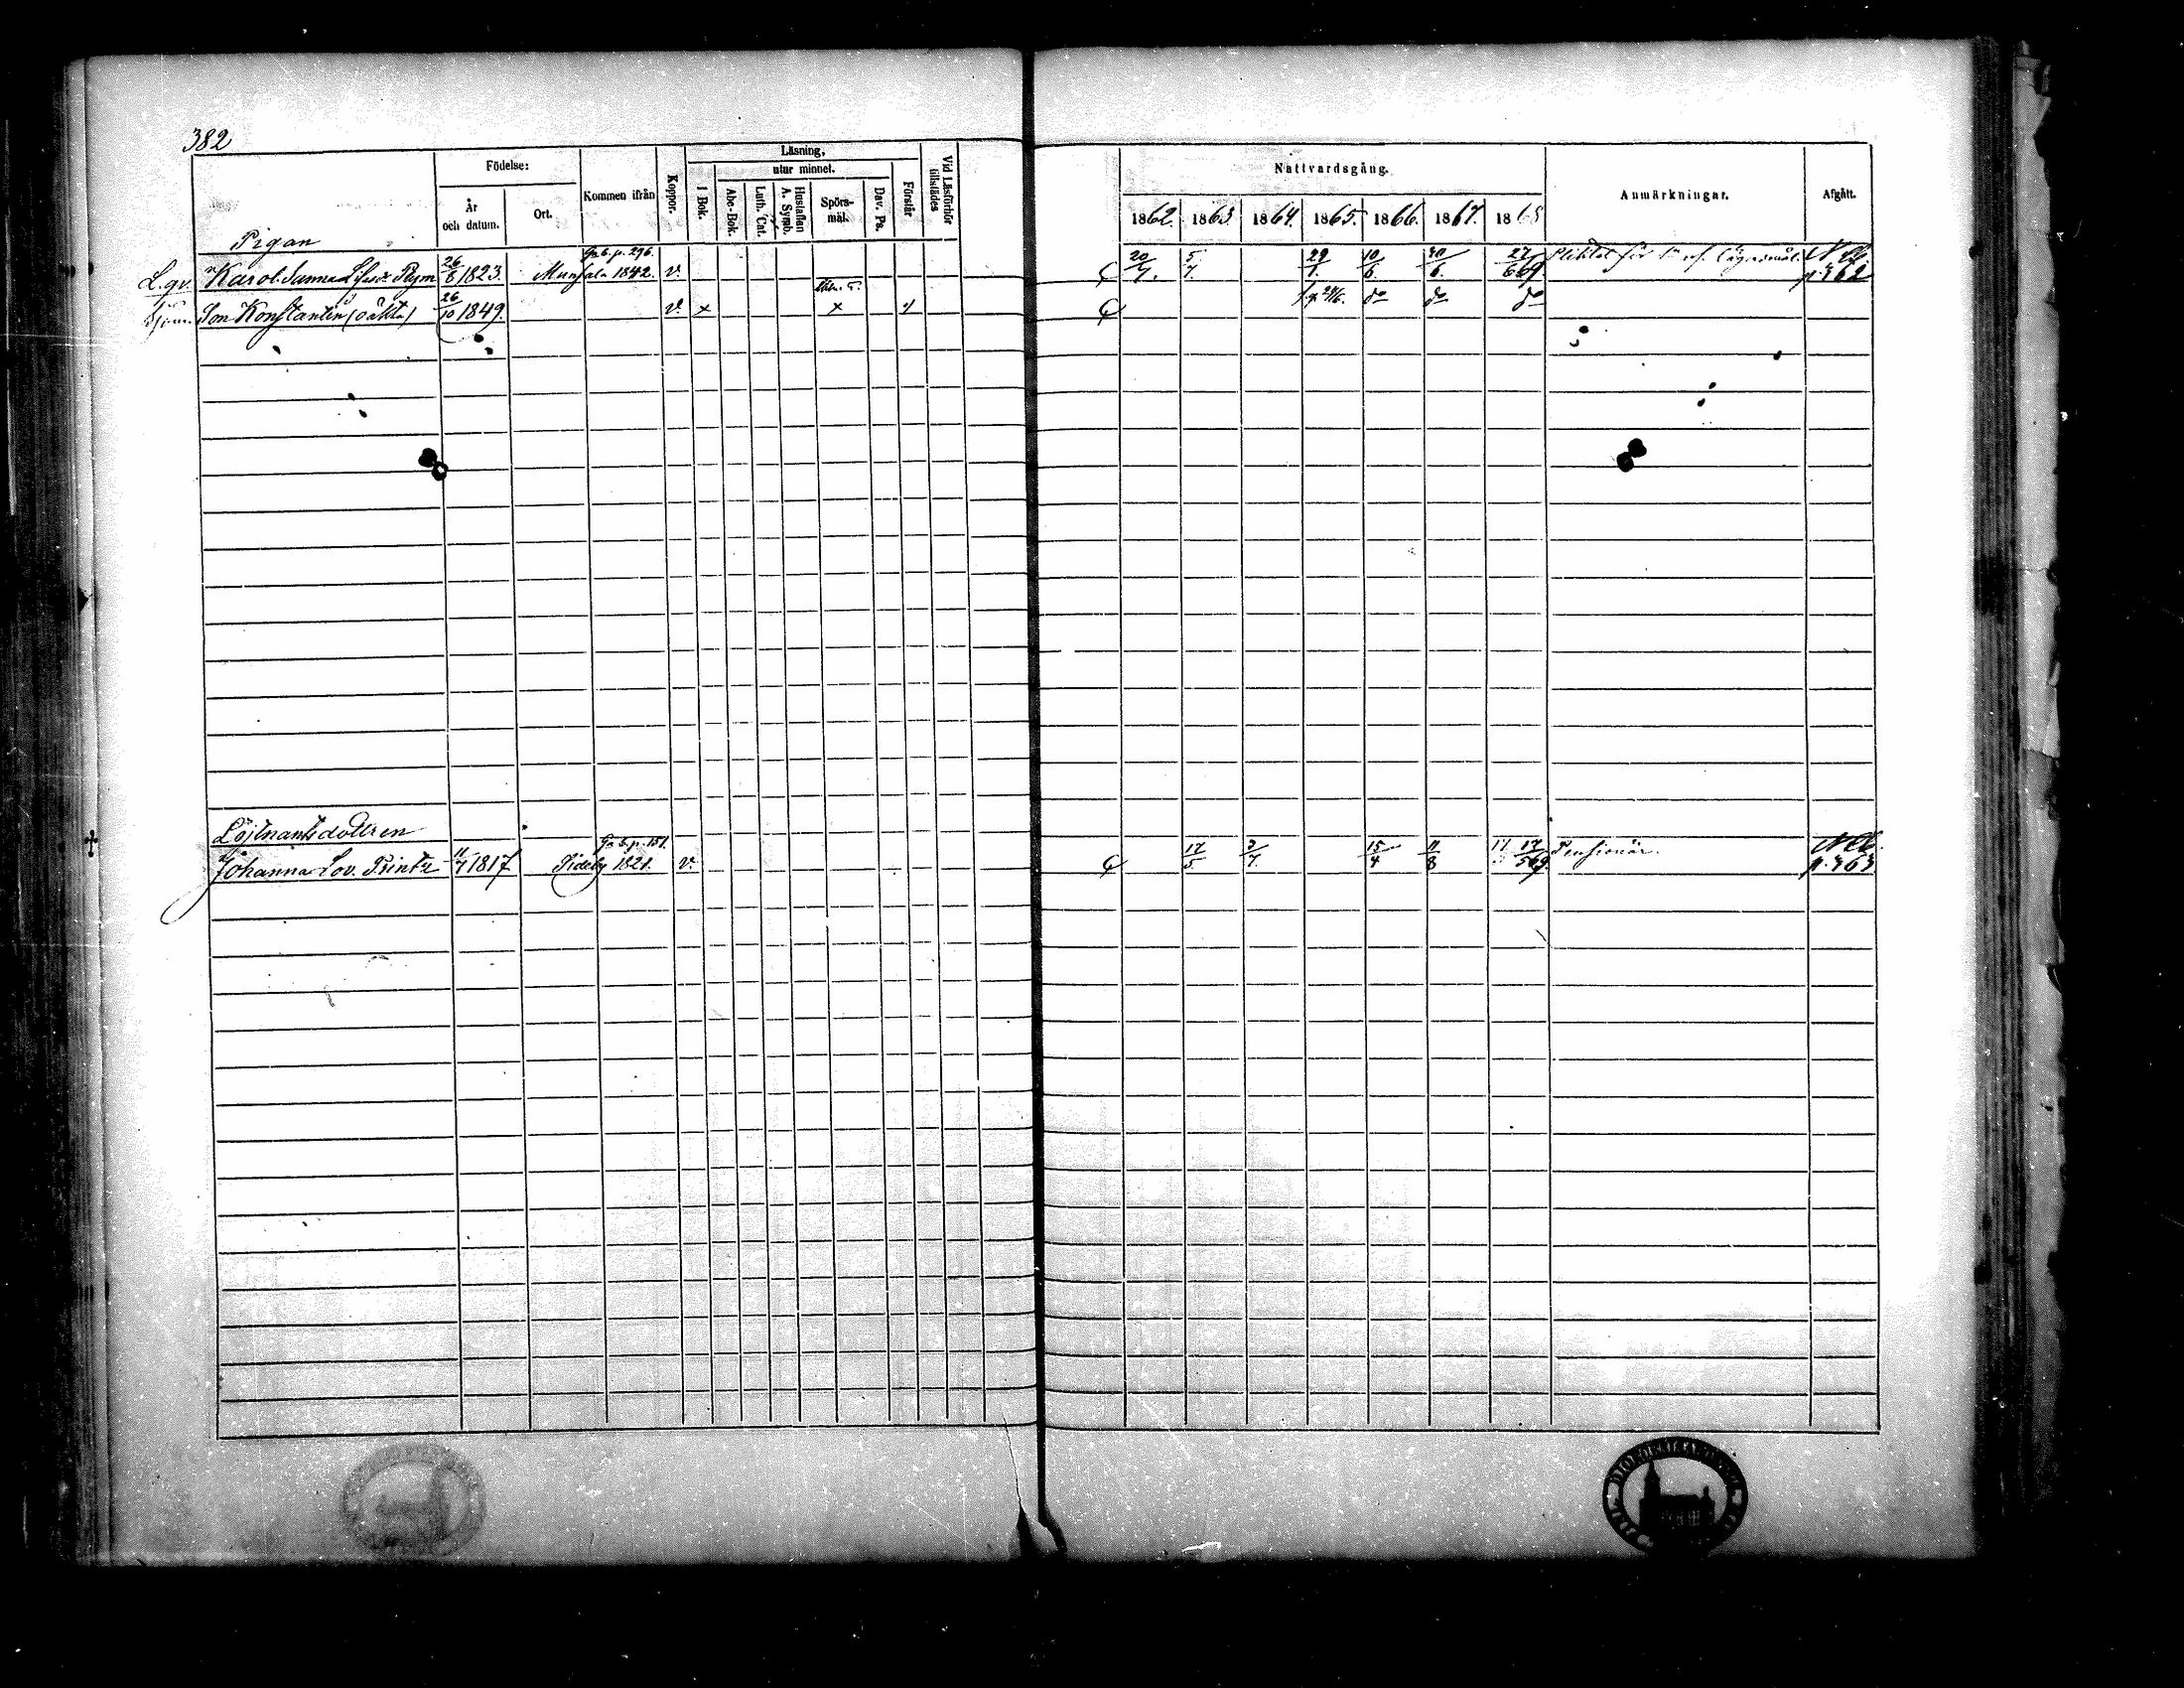 382
Födelse:
År och datum.
Ort.
Kommen ifrån
Koppor.
Läsning,
I Bok.
utur minnet.
Abc-Bok.
Luth. Cat.
Hustaflan A. Symb.
Spörs-mål.
Dav. Ps.
Förstår
Vid Läsförhör tillstädes
Nattvardsgång.
1862. 1863 1864. 1865. 1866. 1867. 1868
Anmärkningar.
Afgått.
Pigan
Karol. Sanna 26/8 1823. Munsala 1842. Gab. p. 296. v. 20/7. 5/7. 29/1. 10/6. 30/6. 27/6 69. Pliktat för lägersmål. N.B. p. 362
Son Konstantin (oäkta) 26/10 1849. v. x x do do do
Löjtnantsdottren
Johanna Lov. Printz 11/7 1817 Sideby 1821. Gab. p. 151. v. 17/5 3/7. 15/4 11/8 17/5 69. Pensionär. N.B. p. 363